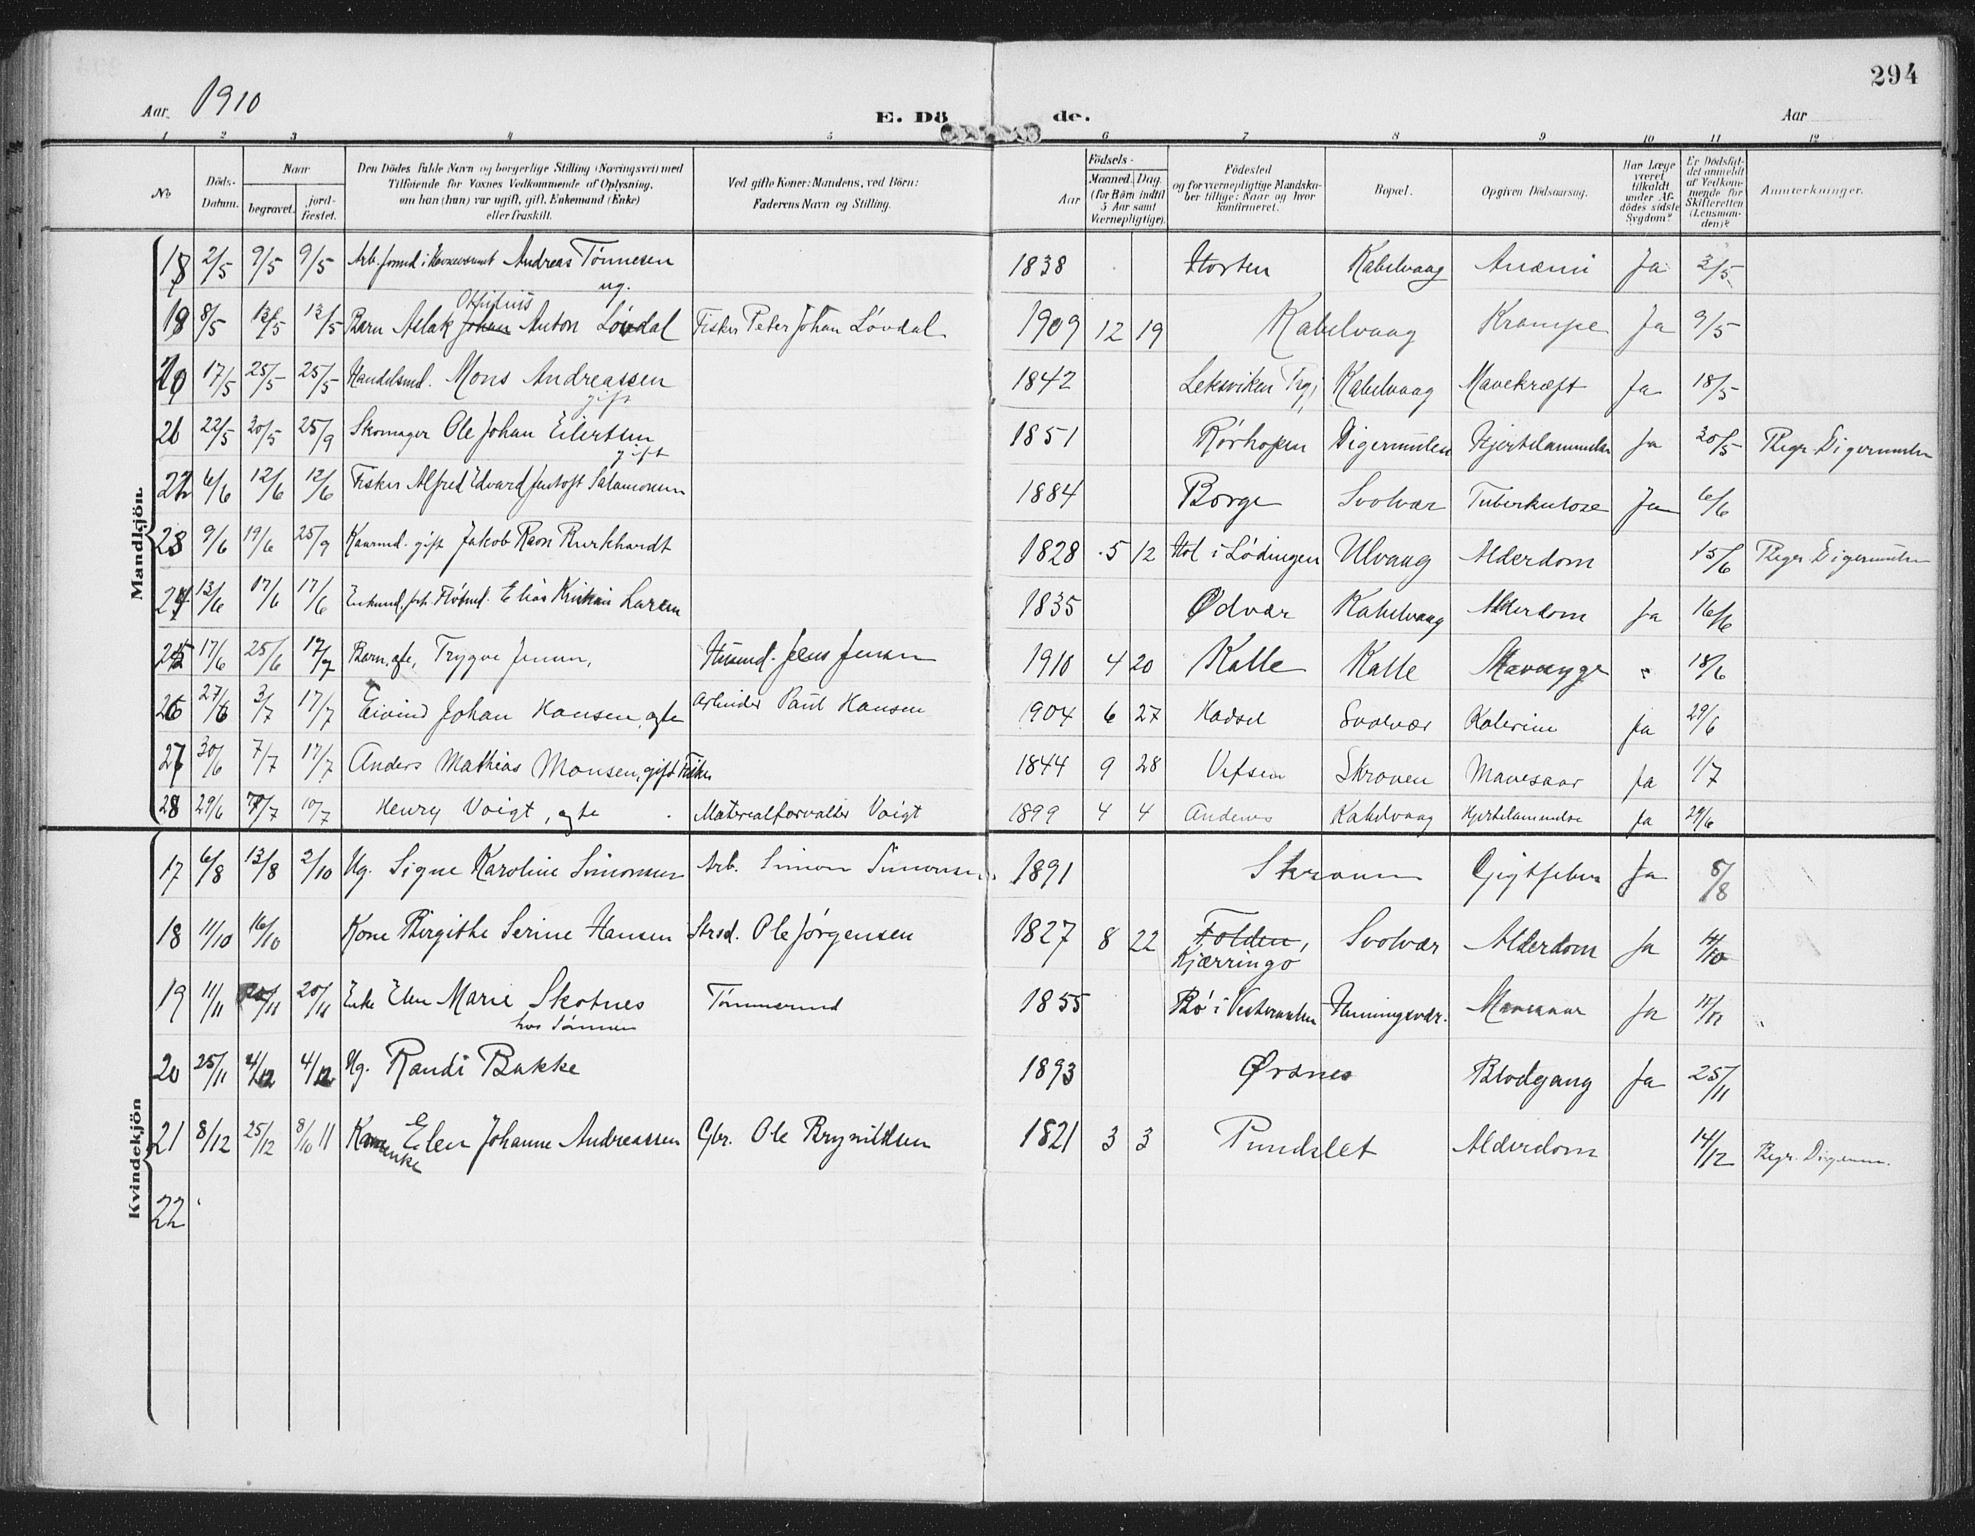 294
Aar 1910 E. Dö de. Aar
1 2 3 4 5 6 7 8 9 10 11 12
No
Döds-Datum.
Naar
begravet.
jord-fæstet.
Den Dödes fulde Navn og borgerlige Stilling (Næringsvei) med
Tilföiende for Voxnes Vedkommende af Oplysning,
om han (hun) var ugift, gift, Enkemand (Enke)
eller fraskilt.
Ved gifte Koner: Mandens, ved Börn:
Faderens Navn og Stilling.
Födsels-
Aar
Maaned. Dag.
(for Börn indtil
5 Aar samt
Værnepligtige).
Födested
og for værnepligtige Mandska-
ber tillige: Naar og hvor
konfirmeret.
Bopæl.
Opgiven Dödsaarsag.
Har Læge
været
tilkaldt
under Af-
dödes sidste
Sygdom?
Er Dödsfal-
det anmeldt
af Vedkom-
mende for
Skifteretten
(Lensman-
den)?
Anmærkninger.
Mandkjön.
18 2/5 9/5 9/5 Arb.formd i Havnevæsenet Andreas Tønnesen 1838 Horten Kabelvaag Anæmi Ja 3/5
ug. Othilius
19 8/5 13/5 13/5 Barn Aslak Johan Anton Løvdal Fisker Peter Johan Løvdal 1909 12 19 Kabelvaag Krampe Ja 9/5
20 17/5 25/5 25/5 Handelsmd. Mons Andreassen 1842 Leksviken Kabelvaag Mavekræft Ja 18/5
gift
21 22/5 30/5 25/9 Skomager Ole Johan Eilertsen 1851 Rørhopen Digermulen Hjertelammelse Ja 30/5 Begr. Digermulen
gift
22 6/6 12/6 12/6 Fisker Alfred Edvard Jentoft Salamonsen 1884 Borge Svolvær Tuberkulose Ja 6/6
23 9/6 19/6 25/9 Kaarmd. gift Jakob Raon Burkhardt 1828 5 12 Hol i Lødingen Ulvaag Alderdom 15/6 Begr. Digermulen
24 13/6 17/6 17/6 Enkemd. Elias Kristian Larsen 1835 Ødvær Kabelvaag Alderdom Ja 16/6
25 17/6 25/6 17/7 Barn, ægte, Trygve Jensen, Husmd. Jens Jensen 1910 4 20 Kalle Kalle Mavesyge " 18/6
26 27/6 3/7 17/7 Eivind Johan Hansen, ægte Arbeider Paul Hansen 1904 6 27 Hadsel Svolvær Kolerine ja 29/6
27 30/6 7/7 17/7 Anders Mathias Monsen, gift Fisker 1844 9 28 Vefsen Skroven Mavesaar ja 1/7
28 29/6 7/7 10/7 Henry Voigt, ægte Materialforvalter Voigt 1899 4 4 Andenes Kabelvaag Hjertelammelse ja 29/6
Kvindekjön
17 6/8 13/8 2/10 Ug. Signe Karoline Simonsen Arb. Simon Simonsen 1891 Skroven Gigtfeber Ja 8/8
18 11/10 16/10 Kone Birgithe Serine Hansen Strsd. Ole Jørgensen 1827 8 22 Folden, Svolvær Alderdom Ja 11/10
Kjærringø
19 11/11 20/11 20/11 Enke Elen Marie Skotnes Tømmermd 1855 Bø i Vesteraalen Henningsvær. Mavesaar Ja 11/11
hos Sønnen
20 25/11 4/12 4/12 Ug. Randi Bakke 1893 Ørsnes Blodgang Ja 25/11
21 8/12 25/12 8/10 11 Kone Elen Johanne Andreassen Gbr. Ole Brynildsen 1821 3 3 Pundslet Alderdom 14/12 Begr. Digerm.
enke
22